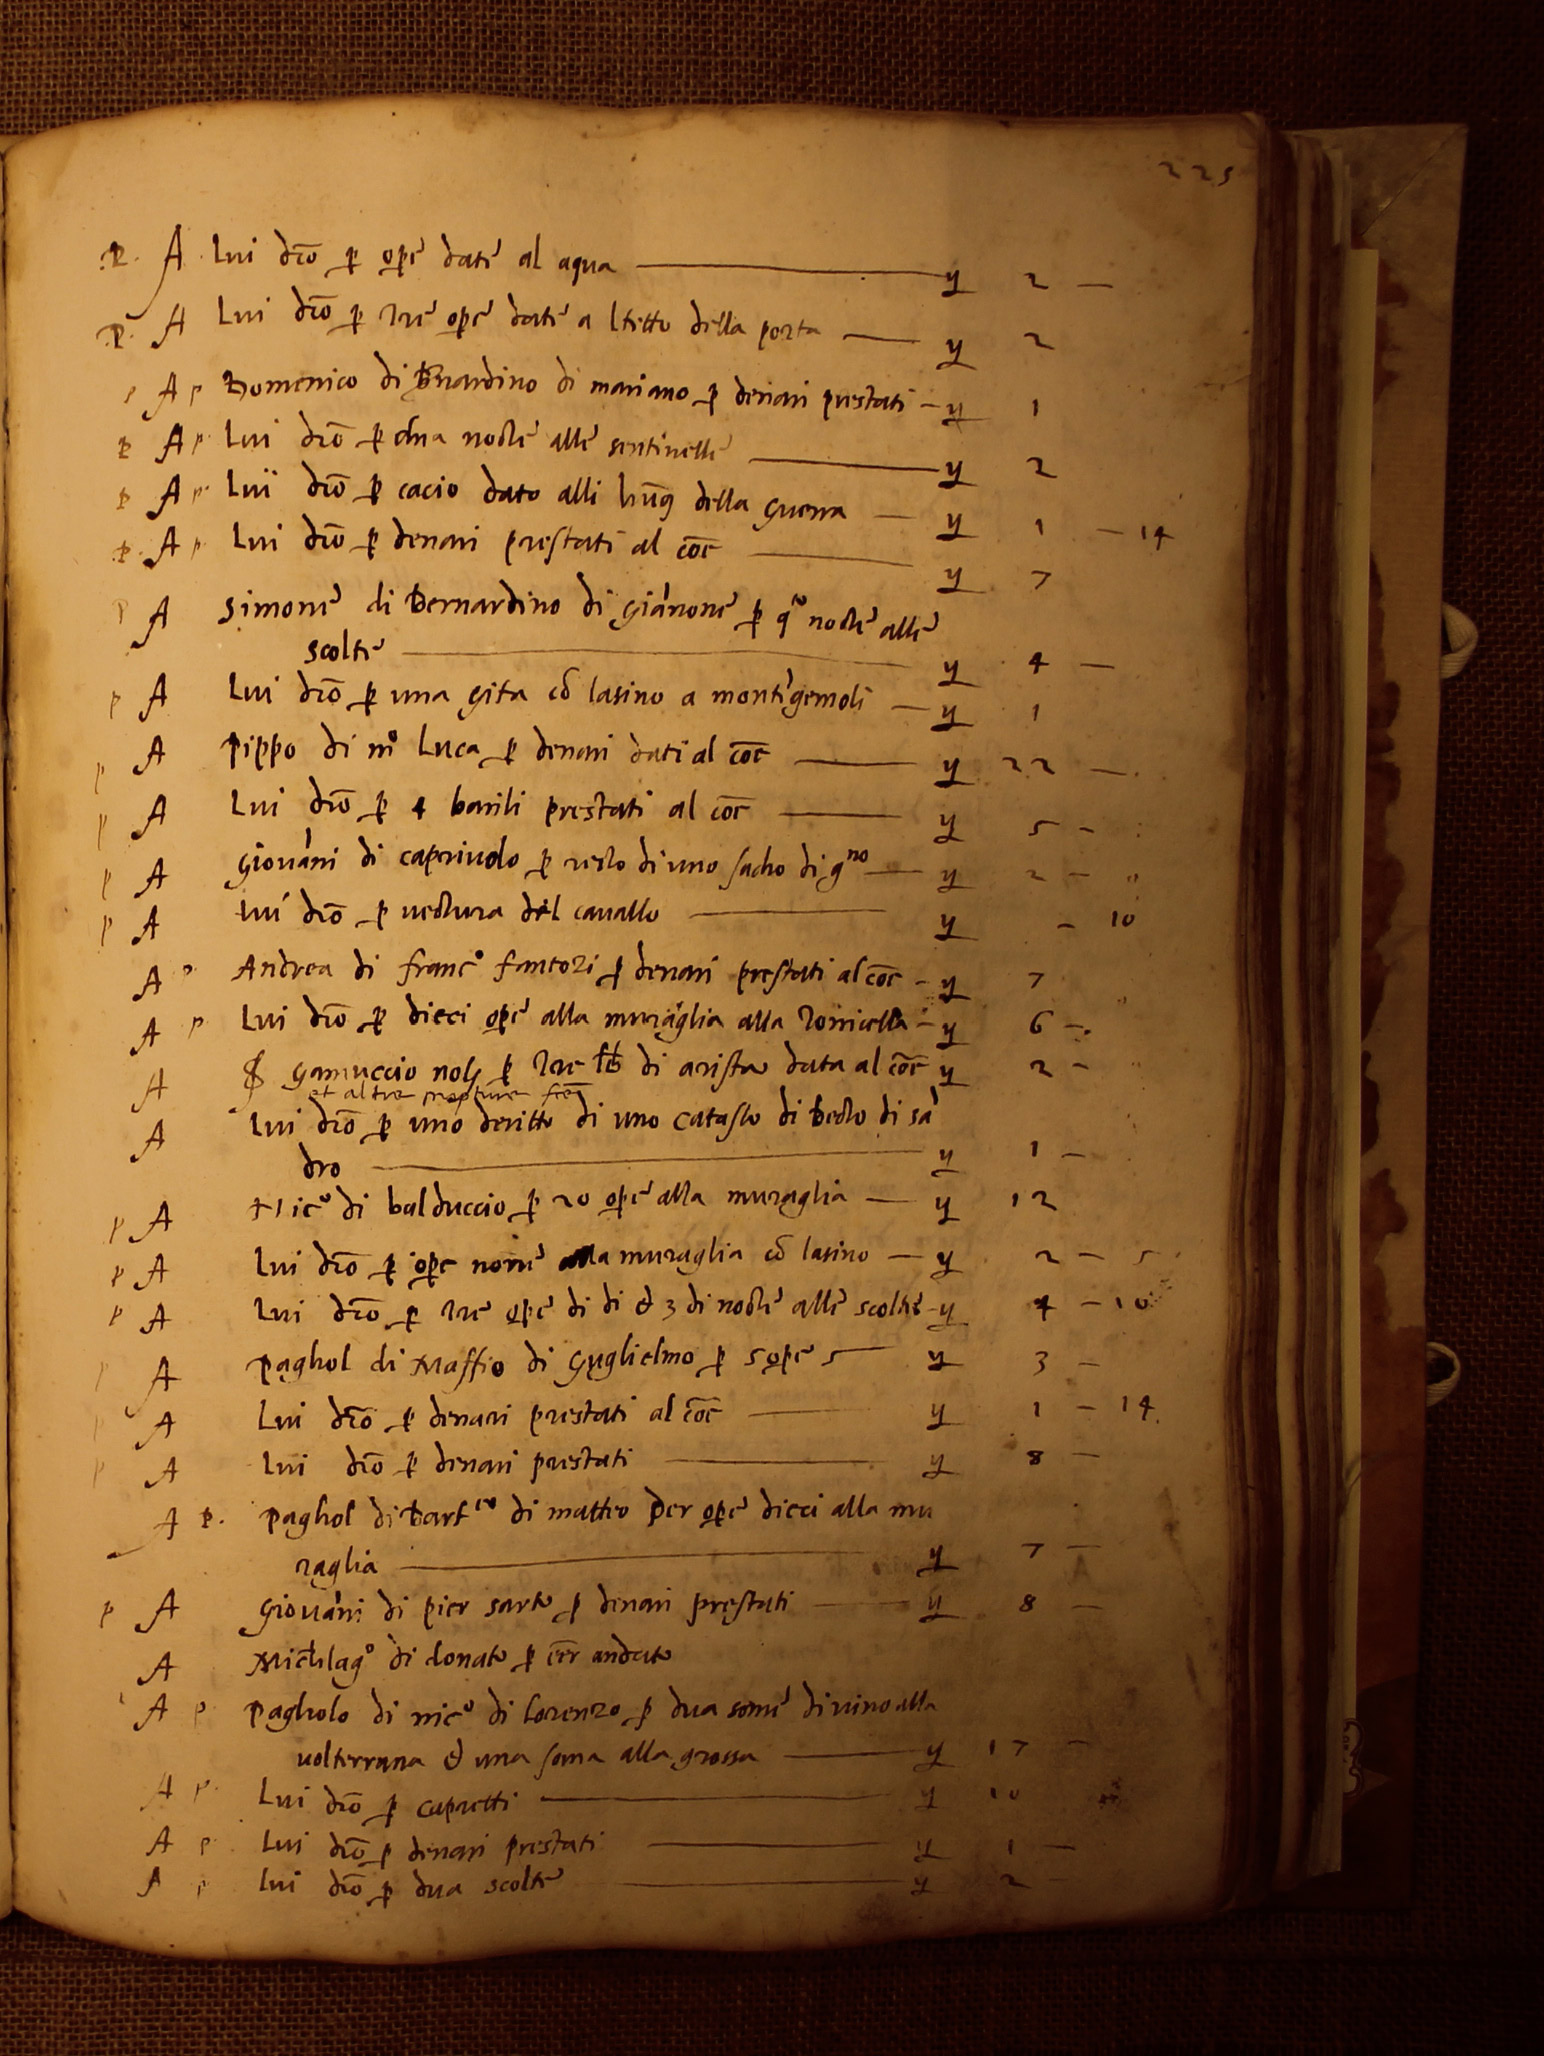 225
.p. A Lui dcō p opē datē al aqua y 2 —
.p. A Lui dcō p tre opē datē a ltetto della porta y 2
p A p Domenico di Bernardino di mariano p denari prestati y 1
p A p Lui dcō p dua noctē allē sentinellē y 2
p A p Lui dcō p cacio dato alli della guerra y 1 — 14
p A p Lui dcō p denari prestati al coē y 7
p A Simonē di Bernardino di Giānonē p qͦ noctē allē
scoltē y 4 —
p A Lui dcō p una gita cō lasino a montigemoli y 1
p A Pippo di mͦ Luca p denari dati al coē y 22 —
p A Lui dcō p 4 barili prestati al coē y 5 —
p A Giovāni di caprivolo p resto di uno sacho di gno y 2 —
p A Lui dcō p vectura del cavallo y — 10
A p Andrea di francͦ fantozi p denari prestati al coē y 7
A p Lui dcō p dieci opē alla muraglia alla y 6 —
A Gamuccio p tre lb di arista data al coē y 2 —
et altre
A Lui dcō p uno deritto di uno catasto di Becto di sā
dro y 1 —
p A Nicͦ di balduccio p 20 opē alla muraglia y 12
p A Lui dcō p opē novē alla muraglia cō lasino y 2 — 5
p A Lui dcō p tre opē di di & 3 di noctē allē scoltē y 4 — 10
A Paghol di Maffio di Guglielmo p 5 opē 5 y 3 —
A Lui dcō p denari prestati al coē y 1 — 14
A Lui dcō p denari prestati y 8 —
A p. Paghol di Bartco di matteo per opē dieci alla mu
raglia y 7 —
p A Giovāni di pier sarto p denari prestati y 8 —
A Michelagͦ di donato p andato
A p Pagholo di nicͦ di Lorenzo p dua somē di vino alla
volterrana & una soma alla grossa y 17 —
A p Lui dcō p capretti y 10
A p Lui dcō p denari prestati y 1 —
A p Lui dcō p dua scoltē y 2 —